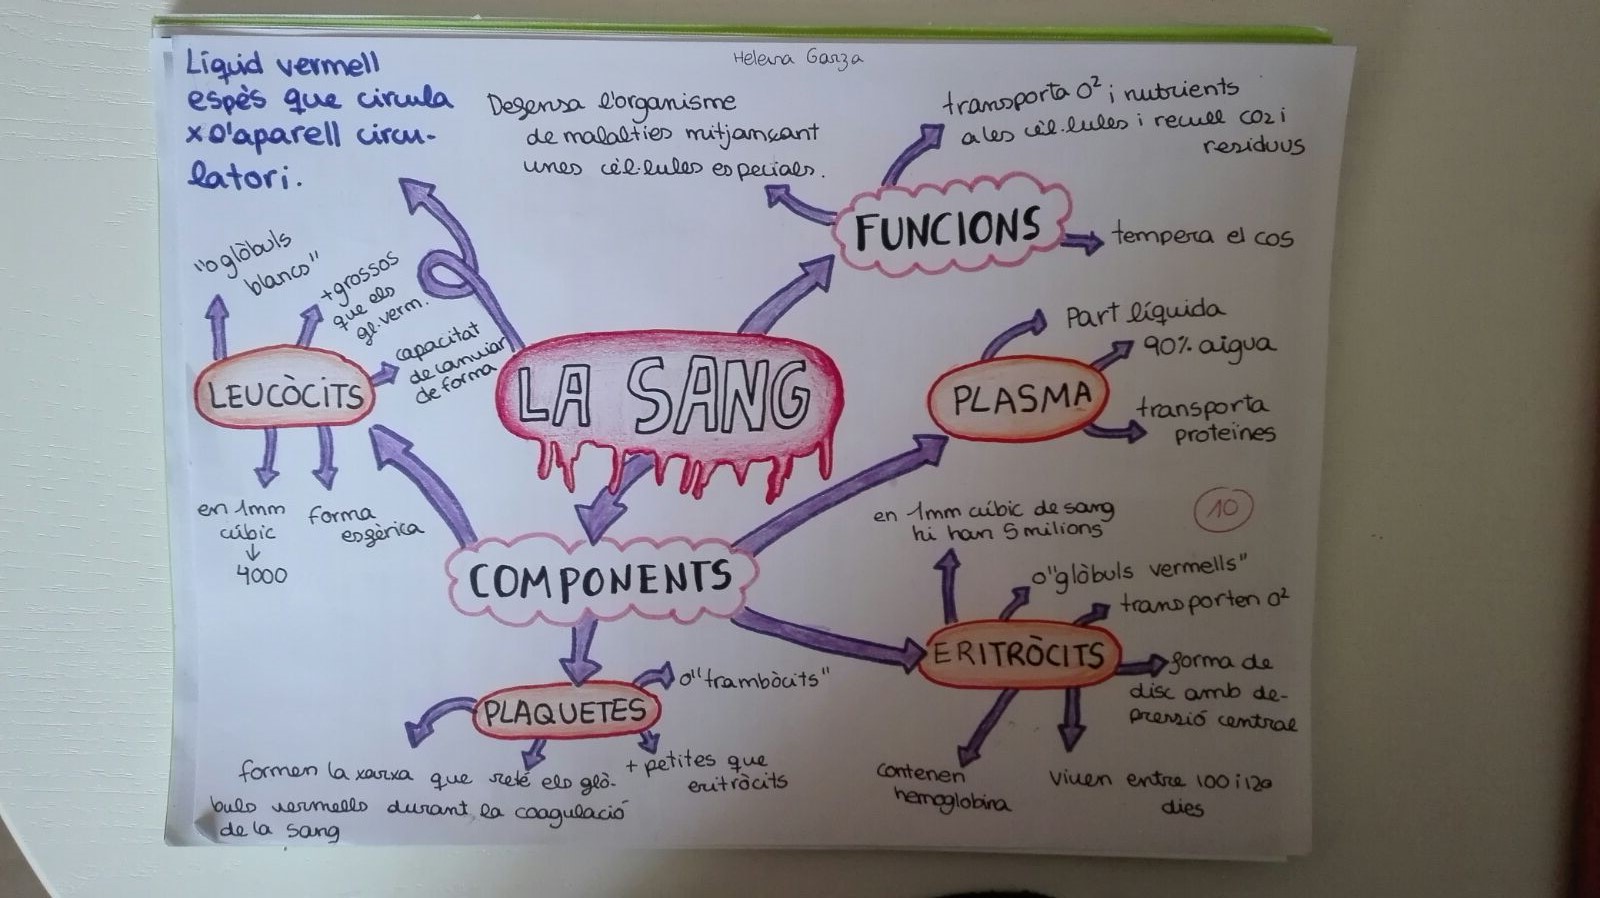 Helena Garza
Líquid vermell
espès que circula
x l'aparell circu-
latori.
Defensa l'organisme
de malalties mitjançant
unes cèl·lules especials.
transporta O² i nutrients
a les cèl·lules i recull CO2 i
residuus
FUNCIONS
tempera el cos
"o glòbuls
blancs"
+ grossos
que els
gl. verm.
capacitat
de canviar
de forma
LEUCÒCITS
en 1mm
cúbic
↓
4000
forma
esfèrica
LA SANG
Part líquida
90% aigua
PLASMA
transporta
proteïnes
COMPONENTS
en 1mm cúbic de sang
hi han 5 milions
10
o "glòbuls vermells"
transporten O²
ERITRÒCITS
forma de
disc amb de-
pressió central
contenen
hemoglobina
viuen entre 100 i 120
dies
o "trambòcits"
PLAQUETES
formen la xarxa que reté els glò-
buls vermells durant la coagulació
de la sang
+ petites que
eritròcits